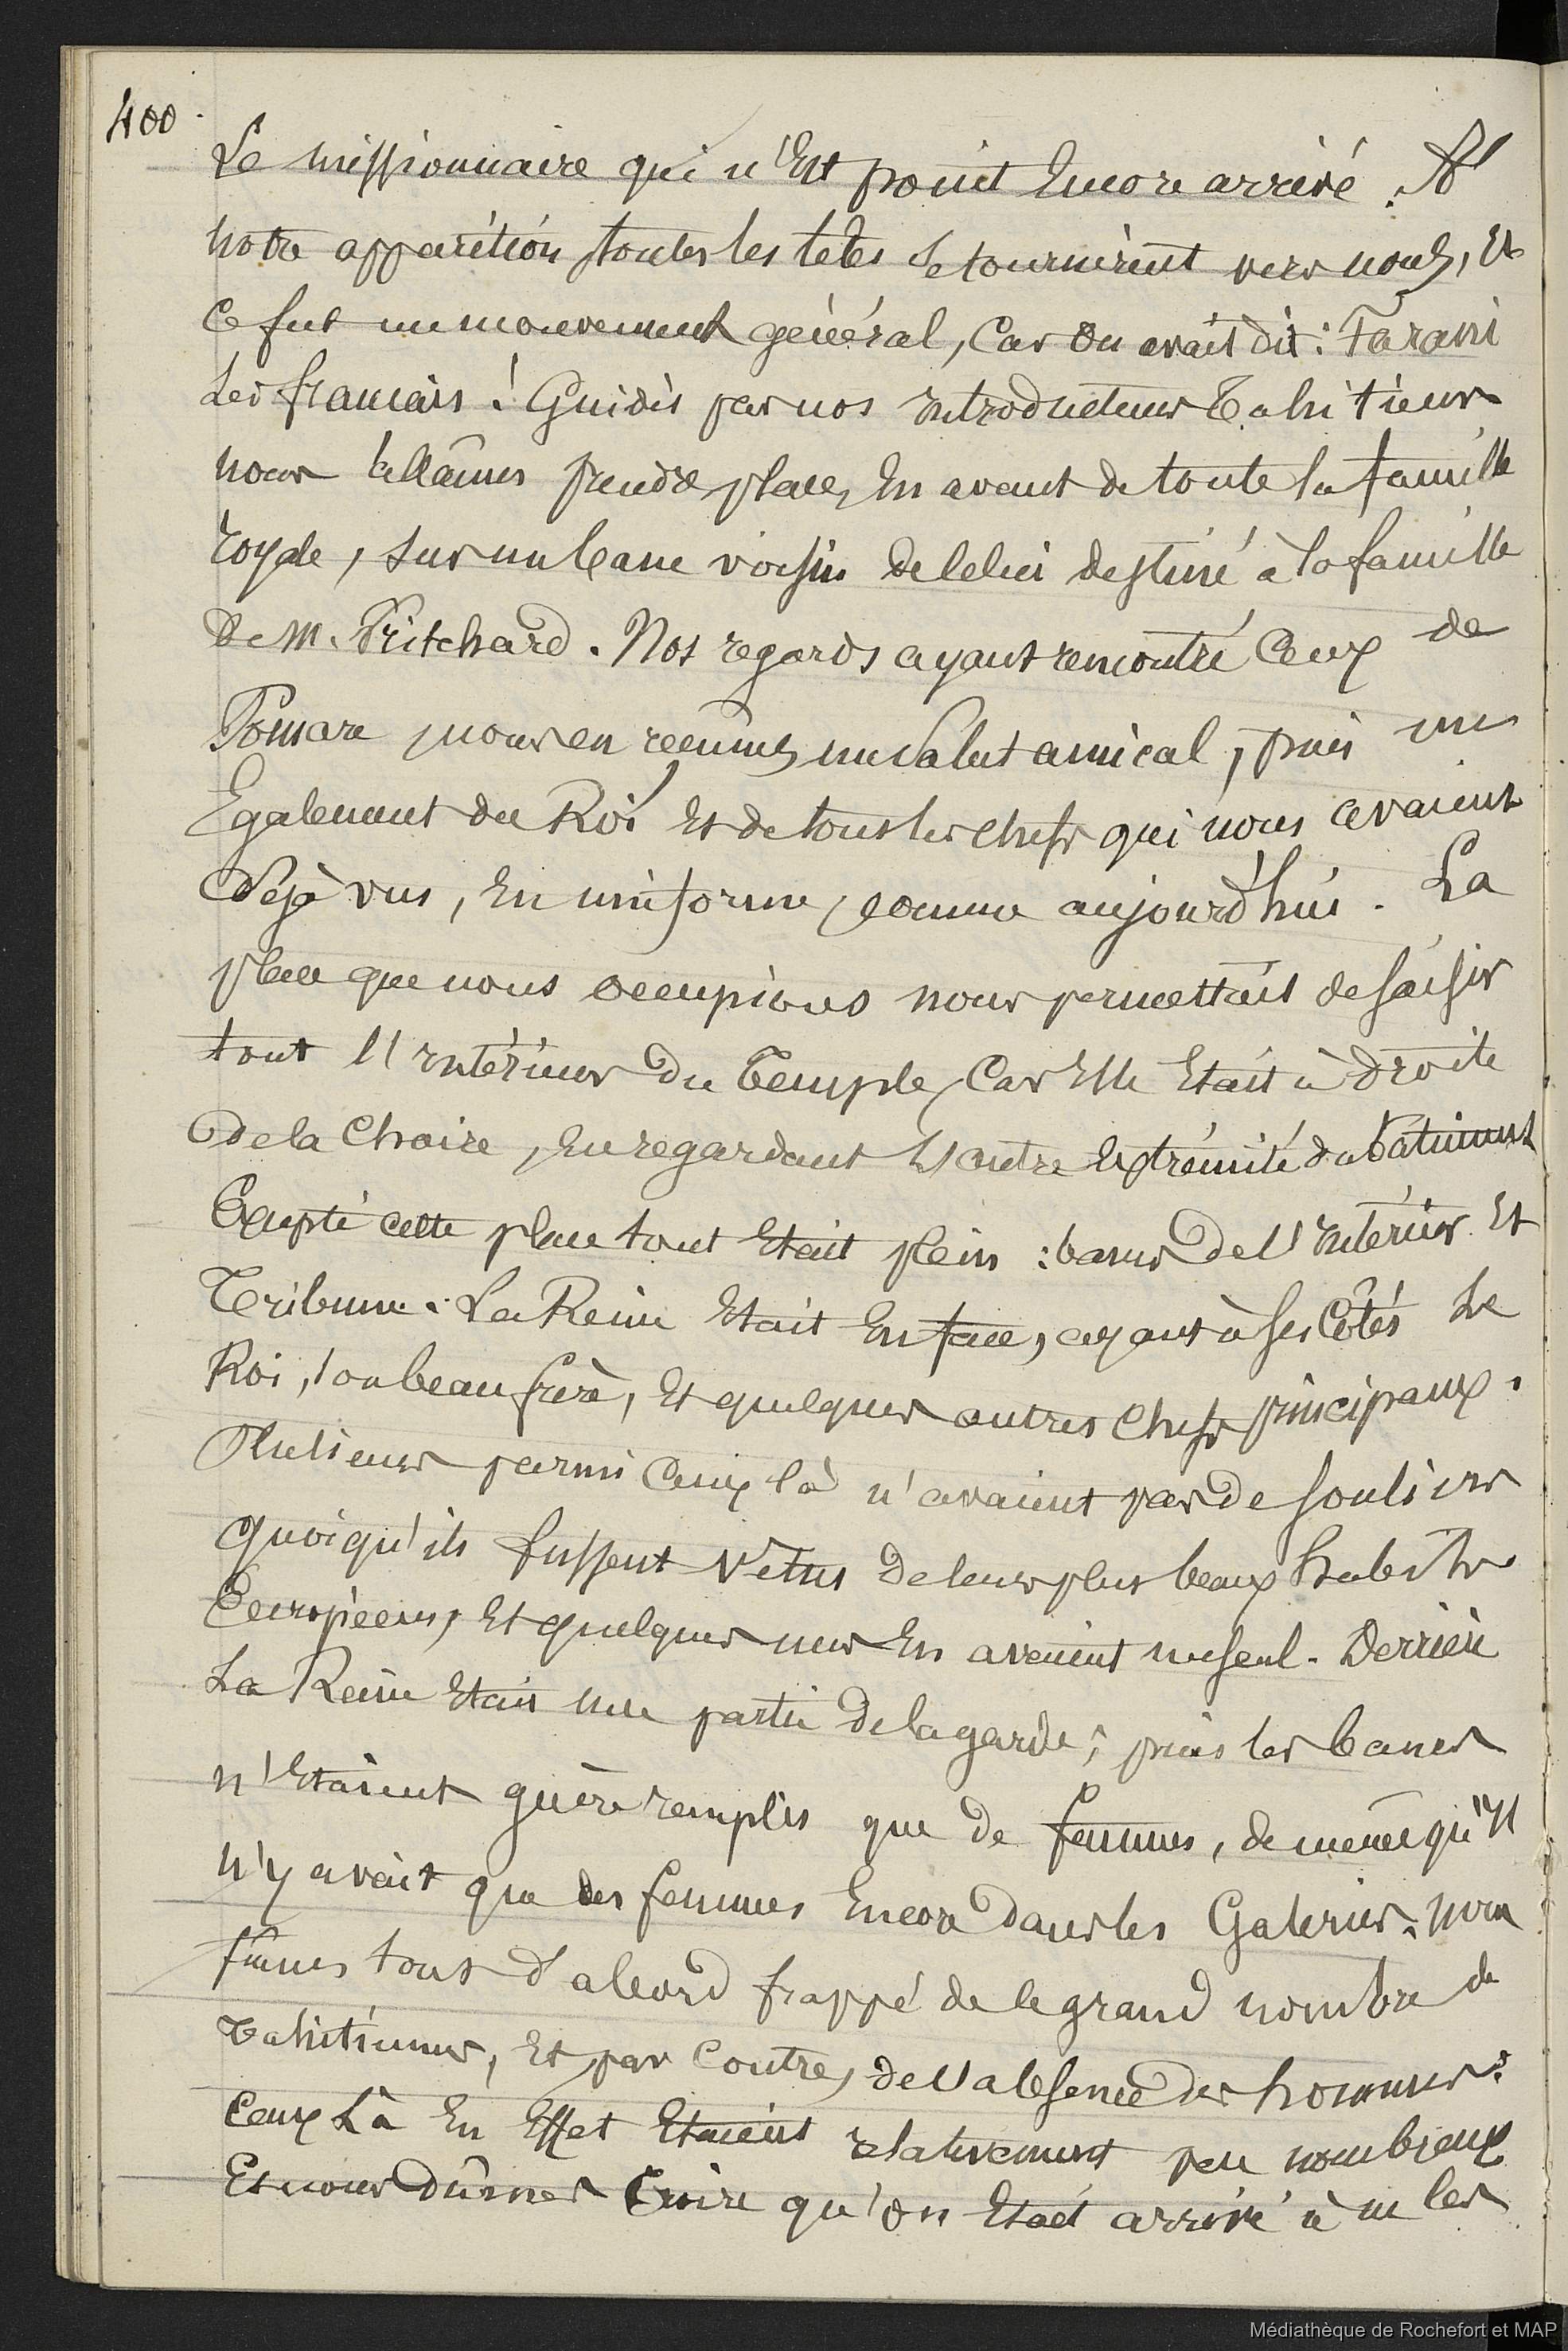 400.
Le missionnaire qui n'Est point Encore arrivé. A
notre apparition toutes les tetes se tournèrent vers nous, Et
ce fut un mouvement général, Car On avait dit : Farani
Les francais ! Guidés par nos introducteurs Tahitiens
nous allâmes prendre place, En avant de toute la famille
royale, sur un banc voisin de celui destiné à la famille
De M. Pritchard. Nos regards ayant rencontré Ceux de
Pomare nous en reçumes un salut amical, puis un
Egalement du Roi Et de tous les chefs qui nous avaient
Déjà vus, En uniforme, comme aujourd'hui. La
place que nous occupions nous permettait de saisir
tout l'intérieur Du Temple, Car Elle Etait à Droite
De la Chaire, En regardant L'autre Extrémité du batiment
Excepté cette place tout Etait plein : bancs De l'intérieur Et
Tribune. La Reine Etait En face, ayant à ses Côtés Le
Roi, son beau frère, Et quelques autres Chefs principaux.
Plusieurs parmi Ceux là n'avaient pas De souliers
quoiqu'ils fussent Vetus De leurs plus beaux habits
Européens, Et quelques uns En avaient un seul. Derrière
La Reine Etait une partie De la garde ; puis les bancs
n'Etaient guère remplis que De femmes, de même qu'il
n'y avait que des femmes Encore Dans les Galeries. Nous
fûmes tout D'abord frappé de le grand nombre de
Tahitiennes, Et par Contre, de l'absence Des hommes :
Ceux Là En Effet Etaient relativement peu nombreux
Et nous Dûmes Croire qu'On Etait arrivé à ne les
Médiathèque de Rochefort et MAP